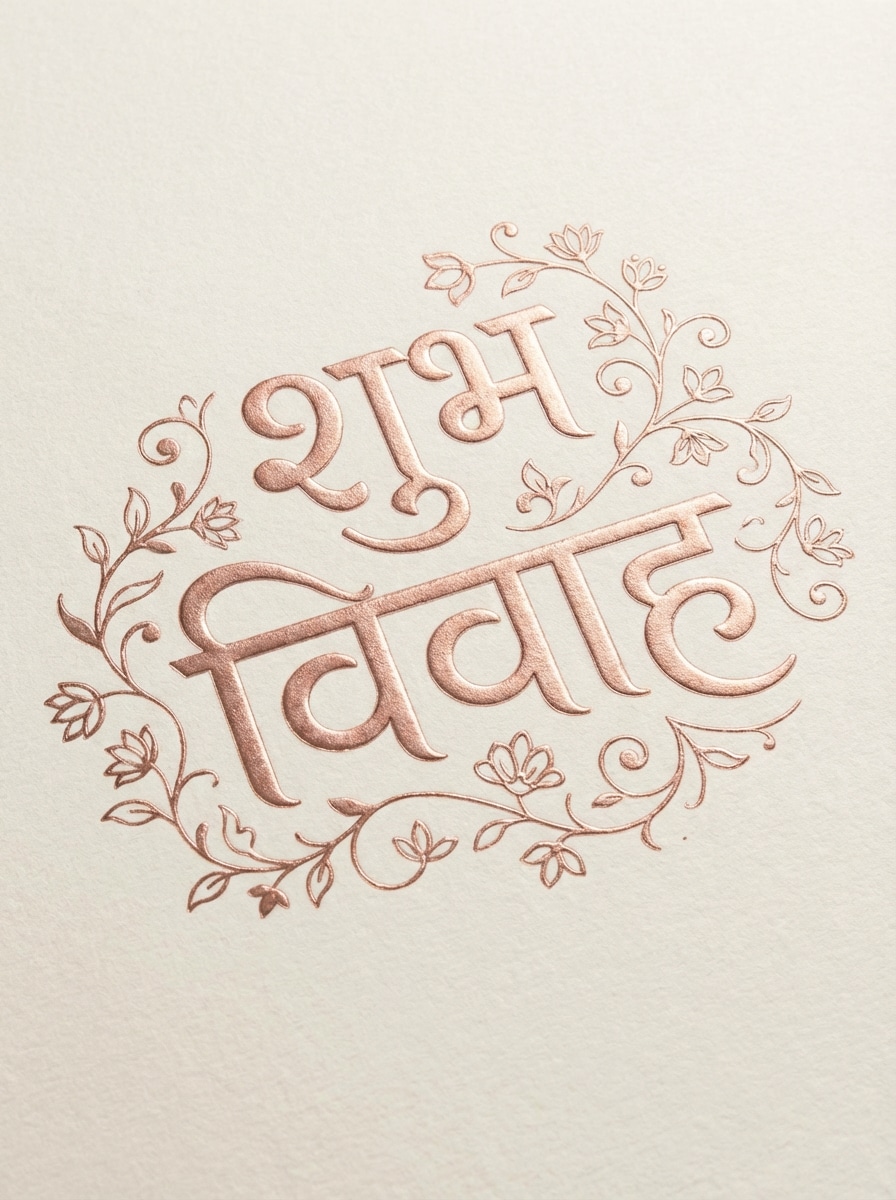 शुभ
विवाह